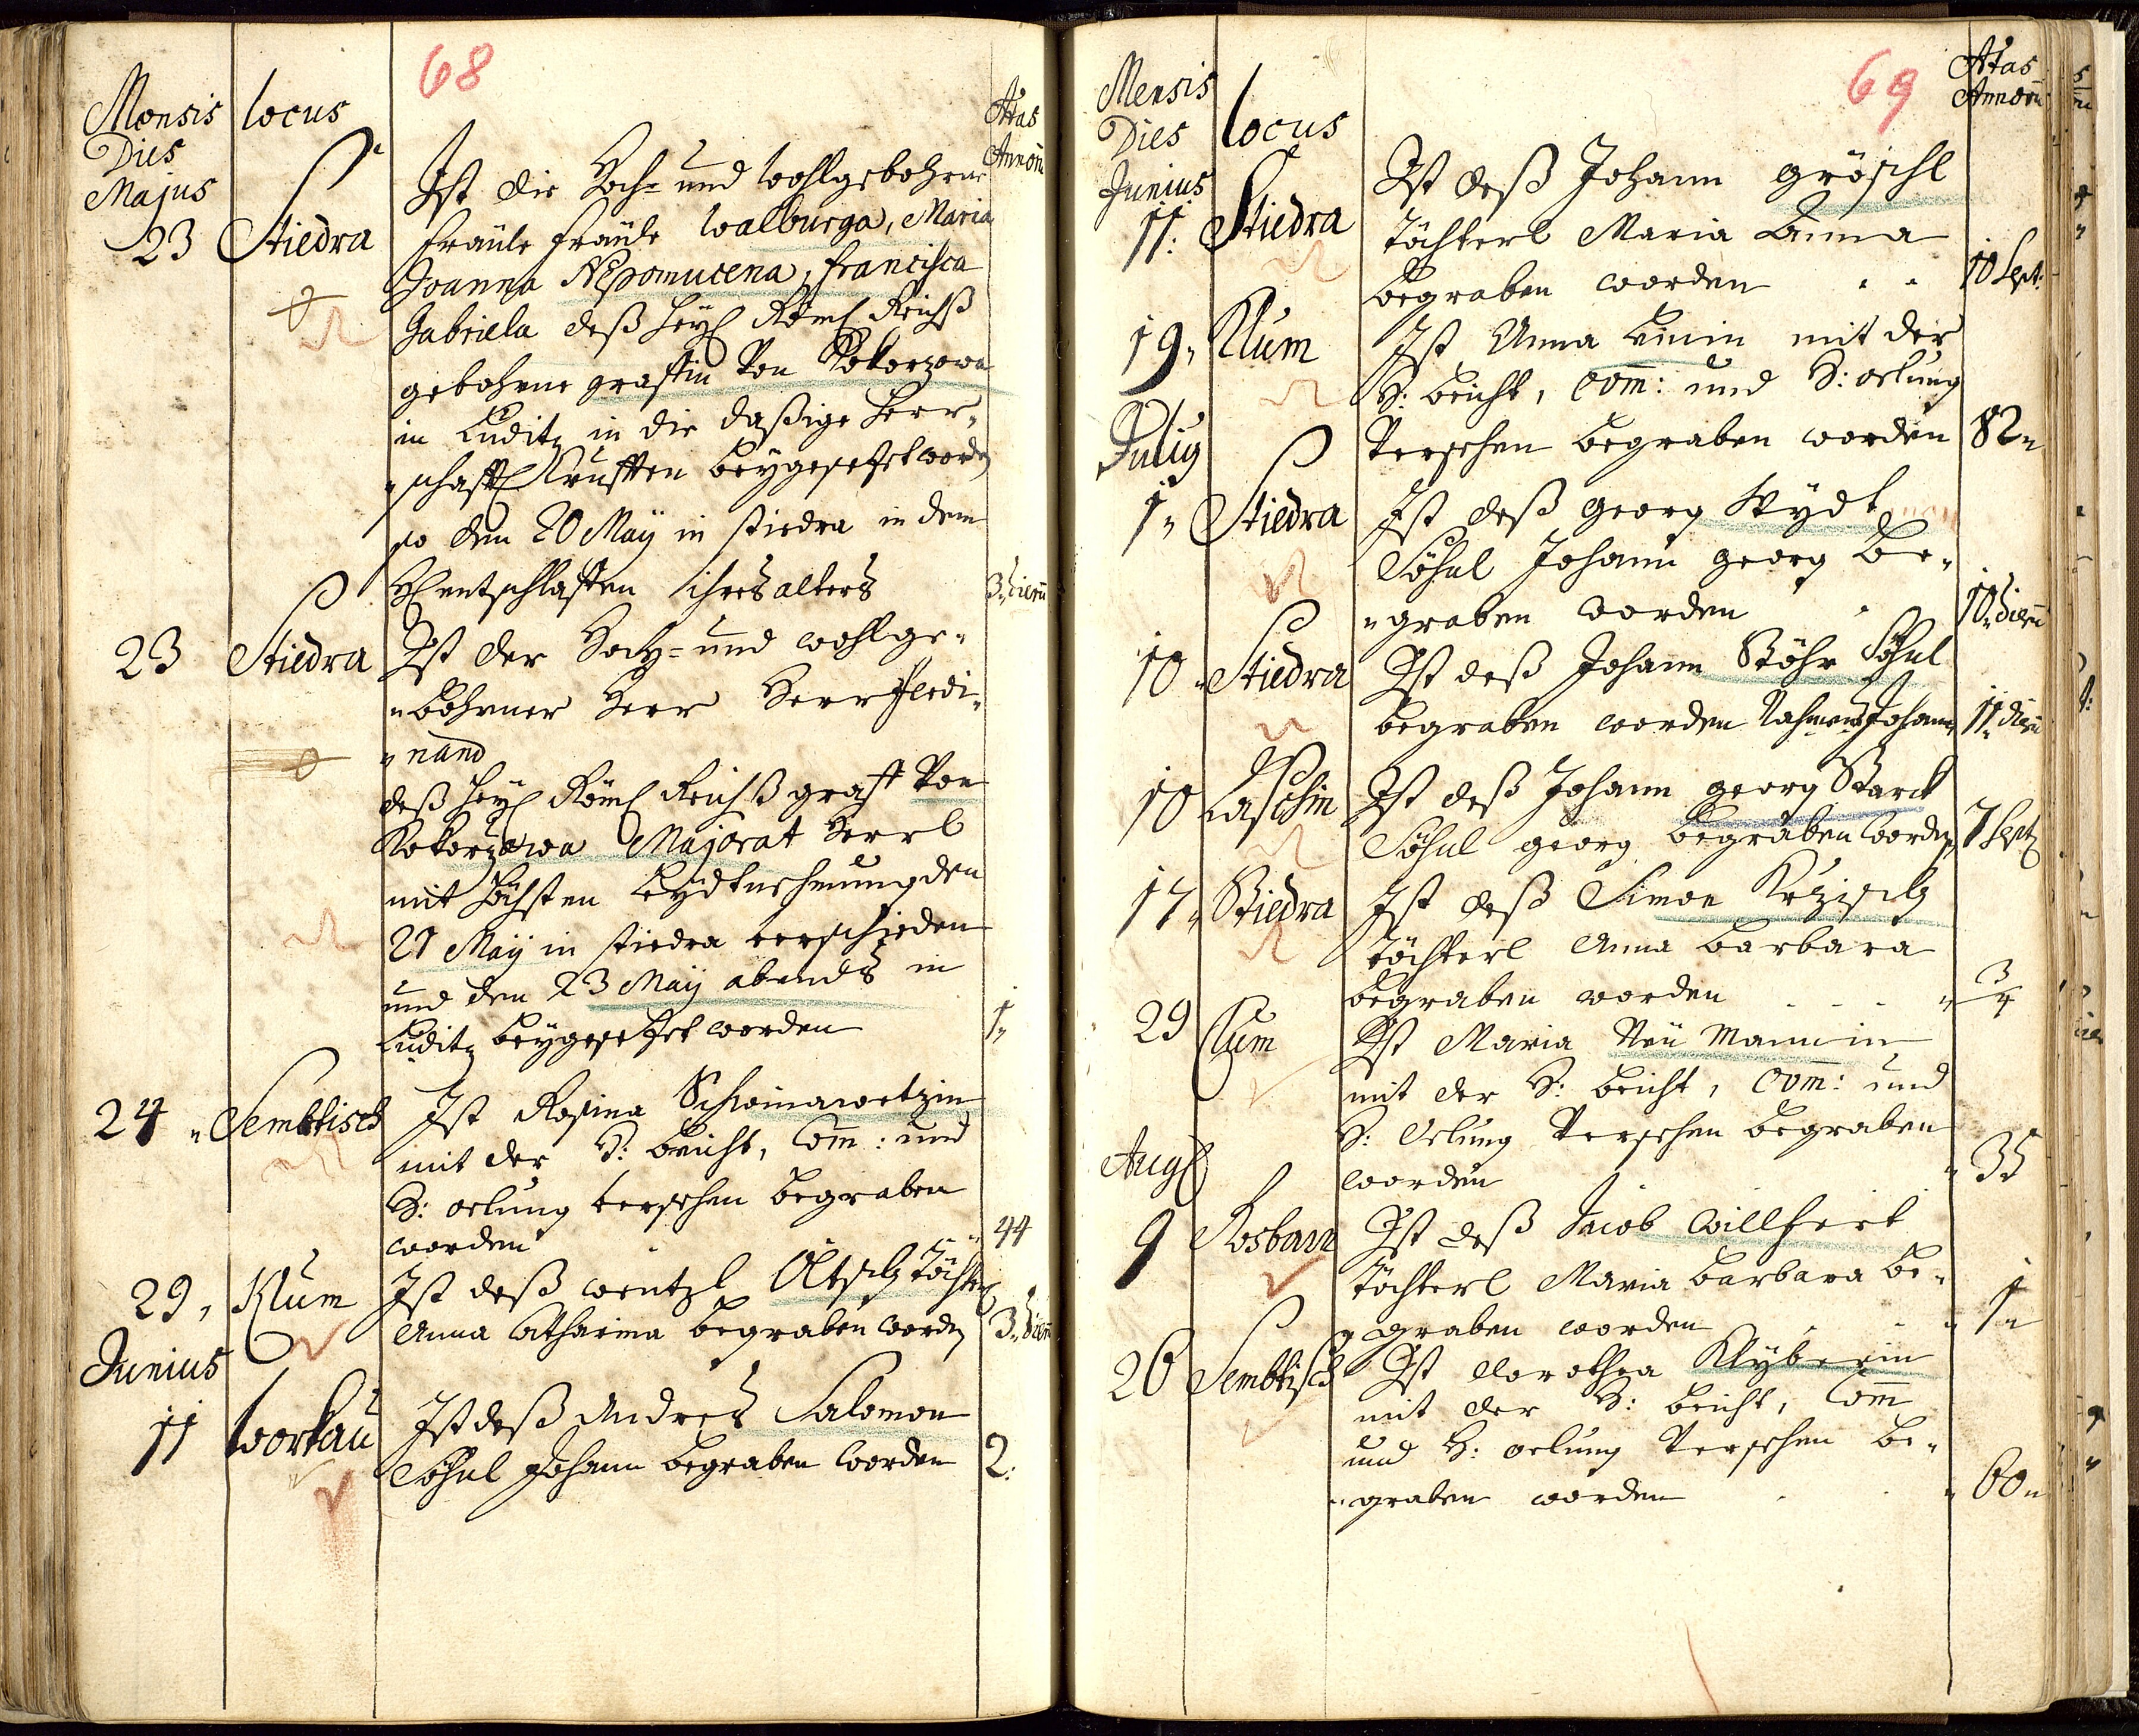 68
Mensis locus Ætas
Dies Annorũ
Majus
Ist die Hoch= und Wohlgebohrne
23 Stiedra Fräule Fräule Walburga, Maria
Joanna Nepomucena, Francisca
Gabriela deß Heyl Röml Reichß
gebohrne graffin Von Kokorzowa
in Luditz in die daßige Herr„
„schafftl Krufften beygesetzt worden
so den 20 Maÿ in stiedra in dem
entschlaffen ihres alters 3
23 Stiedra Ist der Hoch= und wohlge„
„bohrner Herr Herr Ferdi„
„nand
deß Heyl Röml Reichß graff Von
Kokorzowa Majorat Herrl
mit höchsten Leydtnehmung den
21 Maÿ in stiedra verschieden
und den 23 Maÿ abends in
Luditz beygesetzt worden 1„
24 „Sembtisch Ist Rosina Schwinawetzin
mit der H: beicht, Com̅: und
H: oelung versehen begraben
worden 44
29, Klum Ist deß wentzl Töchterl
Anna Catharina begraben worden 3„dierũ
Junius
11 Workau Ist deß Andres Salomon
Söhnl Johann begraben worden 2:
69
Mensis locus Ætas
Dies Annorũ
Junius Ist deß Johann gröschl
11: Stiedra Töchterl Maria Anna
begraben worden 10 Sept:
19„ Klum Ist Anna mit der
H: beicht, Com̅: und H: oelung
Julÿ Versehen begraben worden 82„
1„ Stiedra Ist deß Georg
Söhnl Johann georg be„
„graben worden 10„dierũ
10 „Stiedra Ist deß Johann Stöhr Söhnl
begraben worden Nahmens Johann 11„dierũ
10 Laschin Ist deß Johann georg Starck
Söhnl georg begraben worden 7 Sept
17„ Stiedra Ist deß Simon
Töchterl Anna barbara
begraben worden „ 3/4
29 Klum Ist Maria Neü Mannin
mit der H: beicht, Com̅: und
H: Oelung Versehen begraben
Aug
worden „ 35
9 Kosbarn Ist deß Jacob Willfert
Töchterl Maria barbara be„
„graben worden „ 1„
26 Sembtisch Ist Dorothea Klÿberin
mit der H: beicht, Com̅
und H: oelung Versehen be„
„graben worden „ 60„